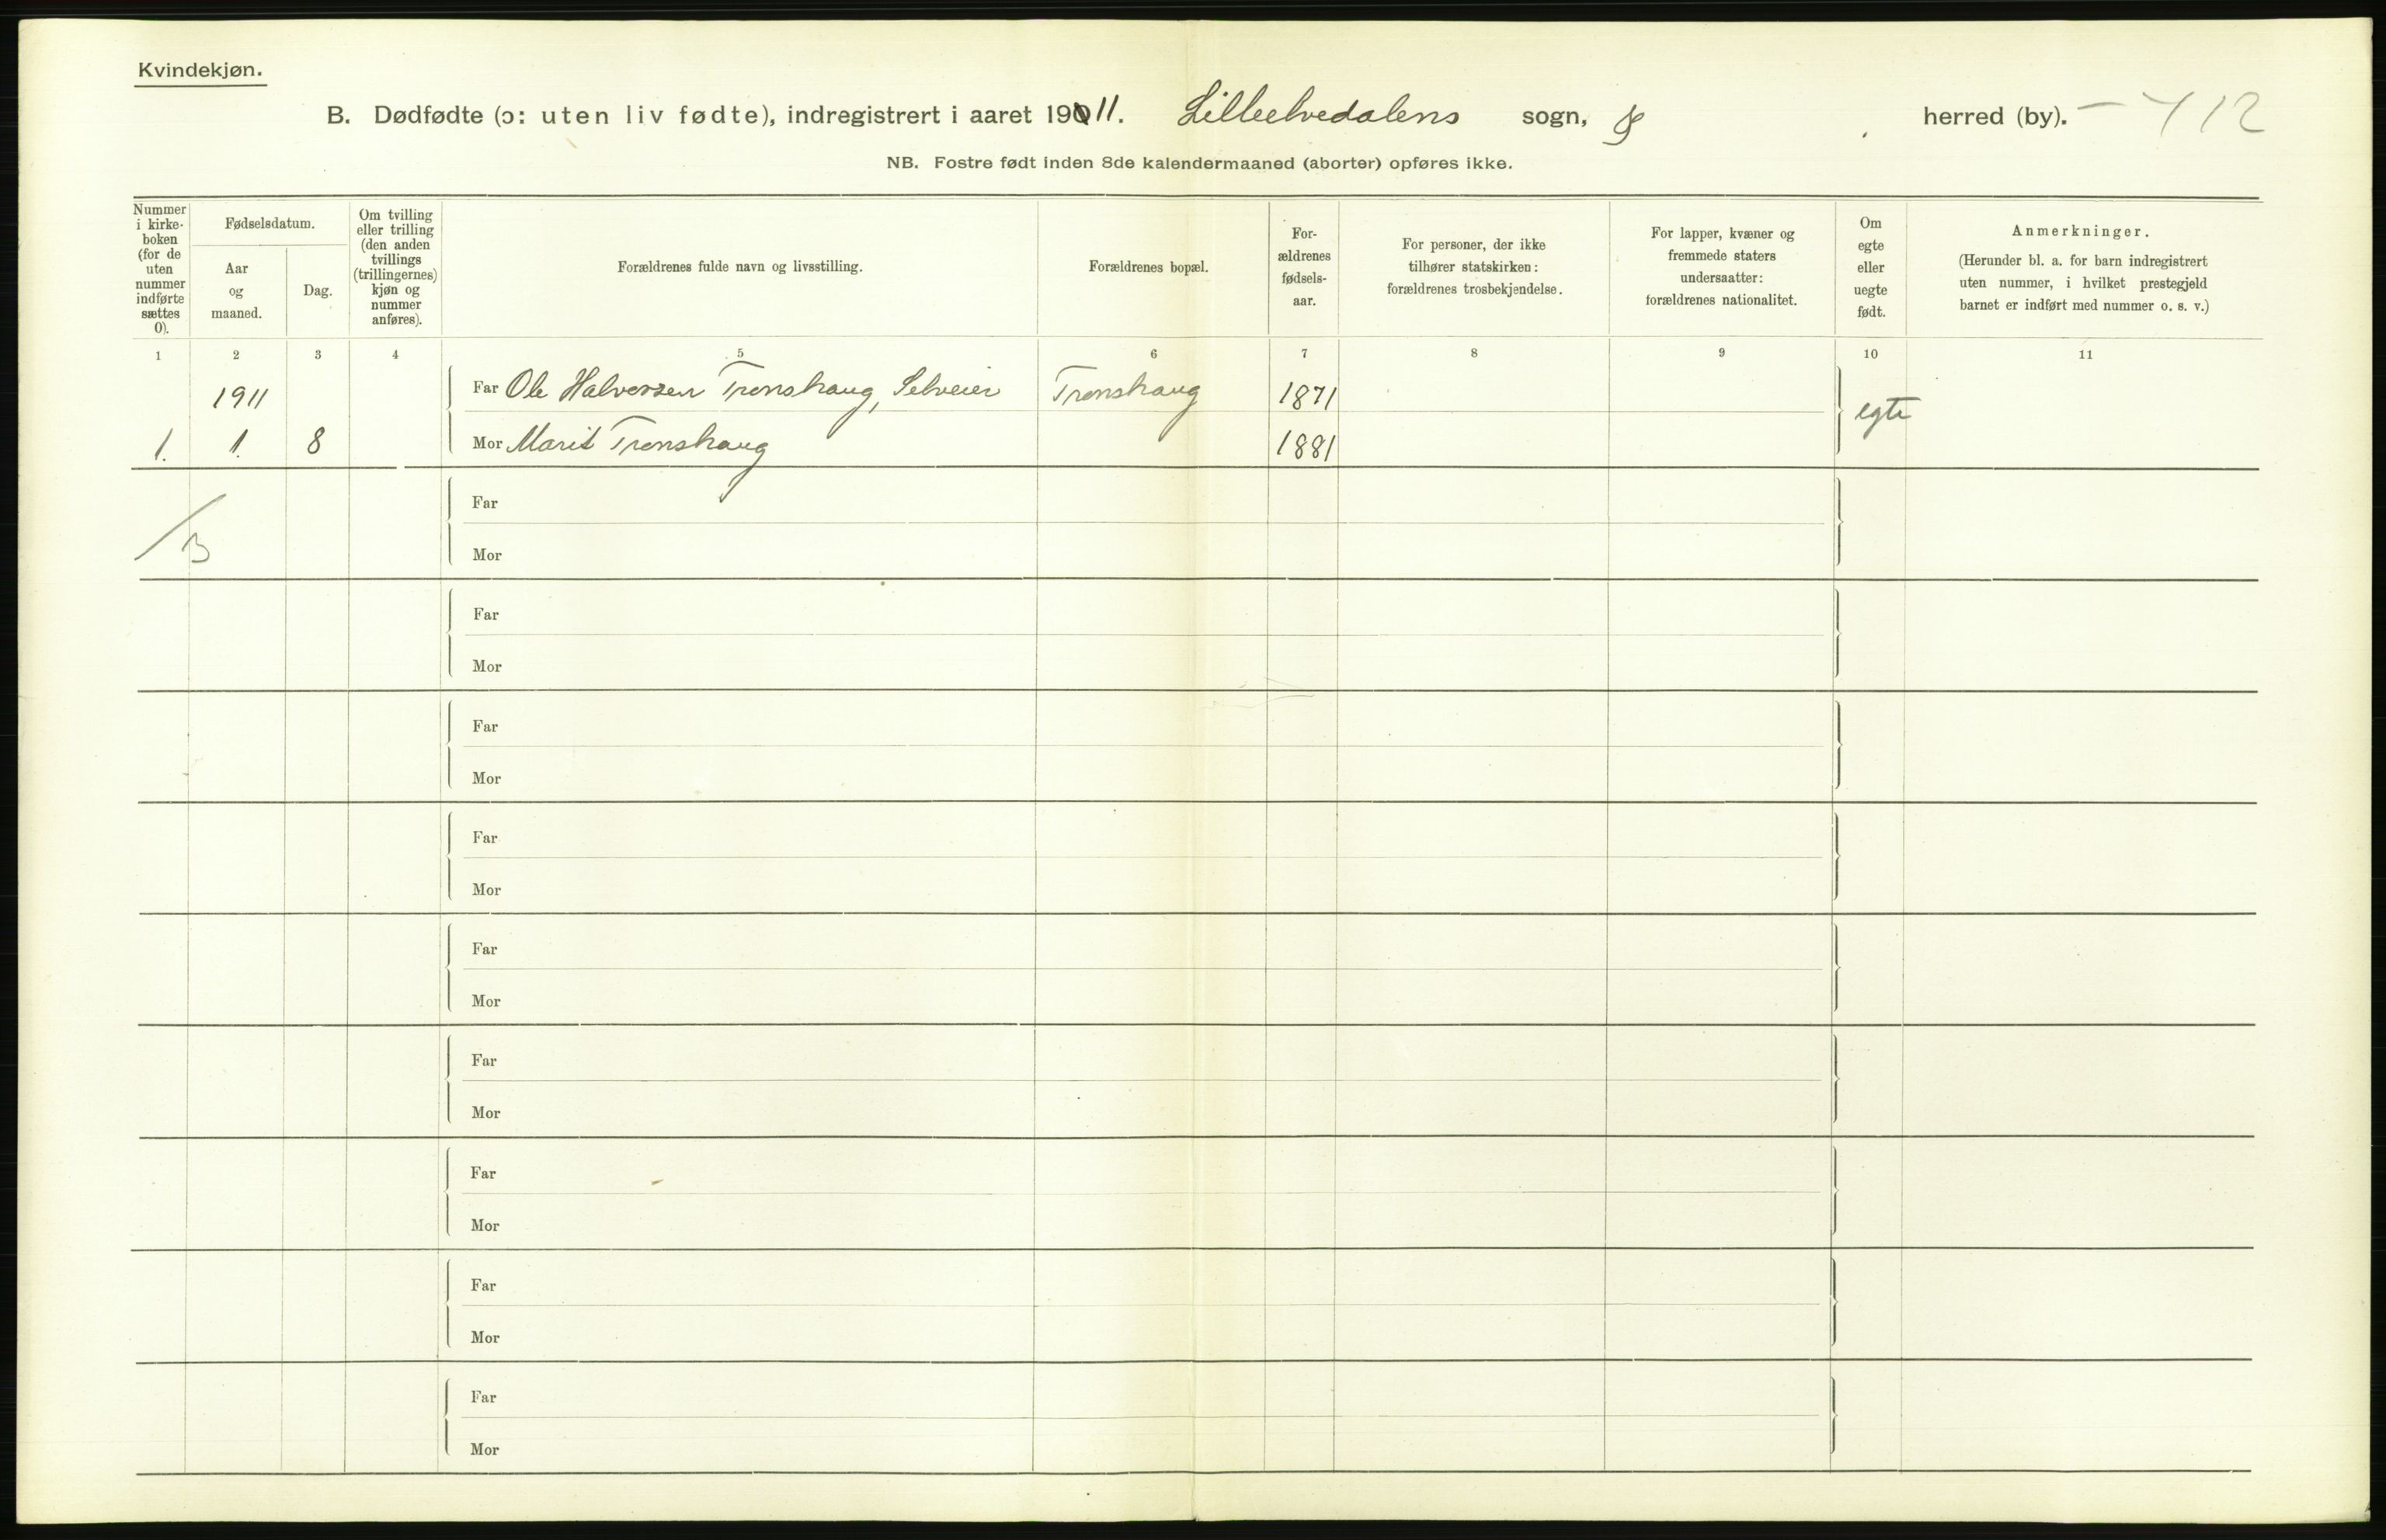 Kvindekjøn.
B. Dødfødte (ɔ: uten liv fødte), indregistrert i aaret 1911. Lilleelvedalens sogn, & herred (by). — 412
NB. Fostre født inden 8de kalendermaaned (aborter) opføres ikke.
Nummer i kirke-boken (for de uten nummer indførte sættes 0).
Fødselsdatum.
Aar og maaned.
Dag.
Om tvilling eller trilling (den anden tvillings (trillingernes) kjøn og nummer anføres).
Forældrenes fulde navn og livsstilling.
Forældrenes bopæl.
For-ældrenes fødsels-aar.
For personer, der ikke tilhører statskirken: forældrenes trosbekjendelse.
For lapper, kvæner og fremmede staters undersaatter: forældrenes nationalitet.
Om egte eller uegte født.
Anmerkninger.
(Herunder bl. a. for barn indregistrert uten nummer, i hvilket prestegjeld barnet er indført med nummer o. s. v.)
1 2 3 4 5 6 7 8 9 10 11
1911 Far Ole Halvorsen Tronshaug, Selveier Tronshaug 1871 egte
1. 1. 8 Mor Marit Tronshaug 1881
Far
/3
Mor
Far
Mor
Far
Mor
Far
Mor
Far
Mor
Far
Mor
Far
Mor
Far
Mor
Far
Mor